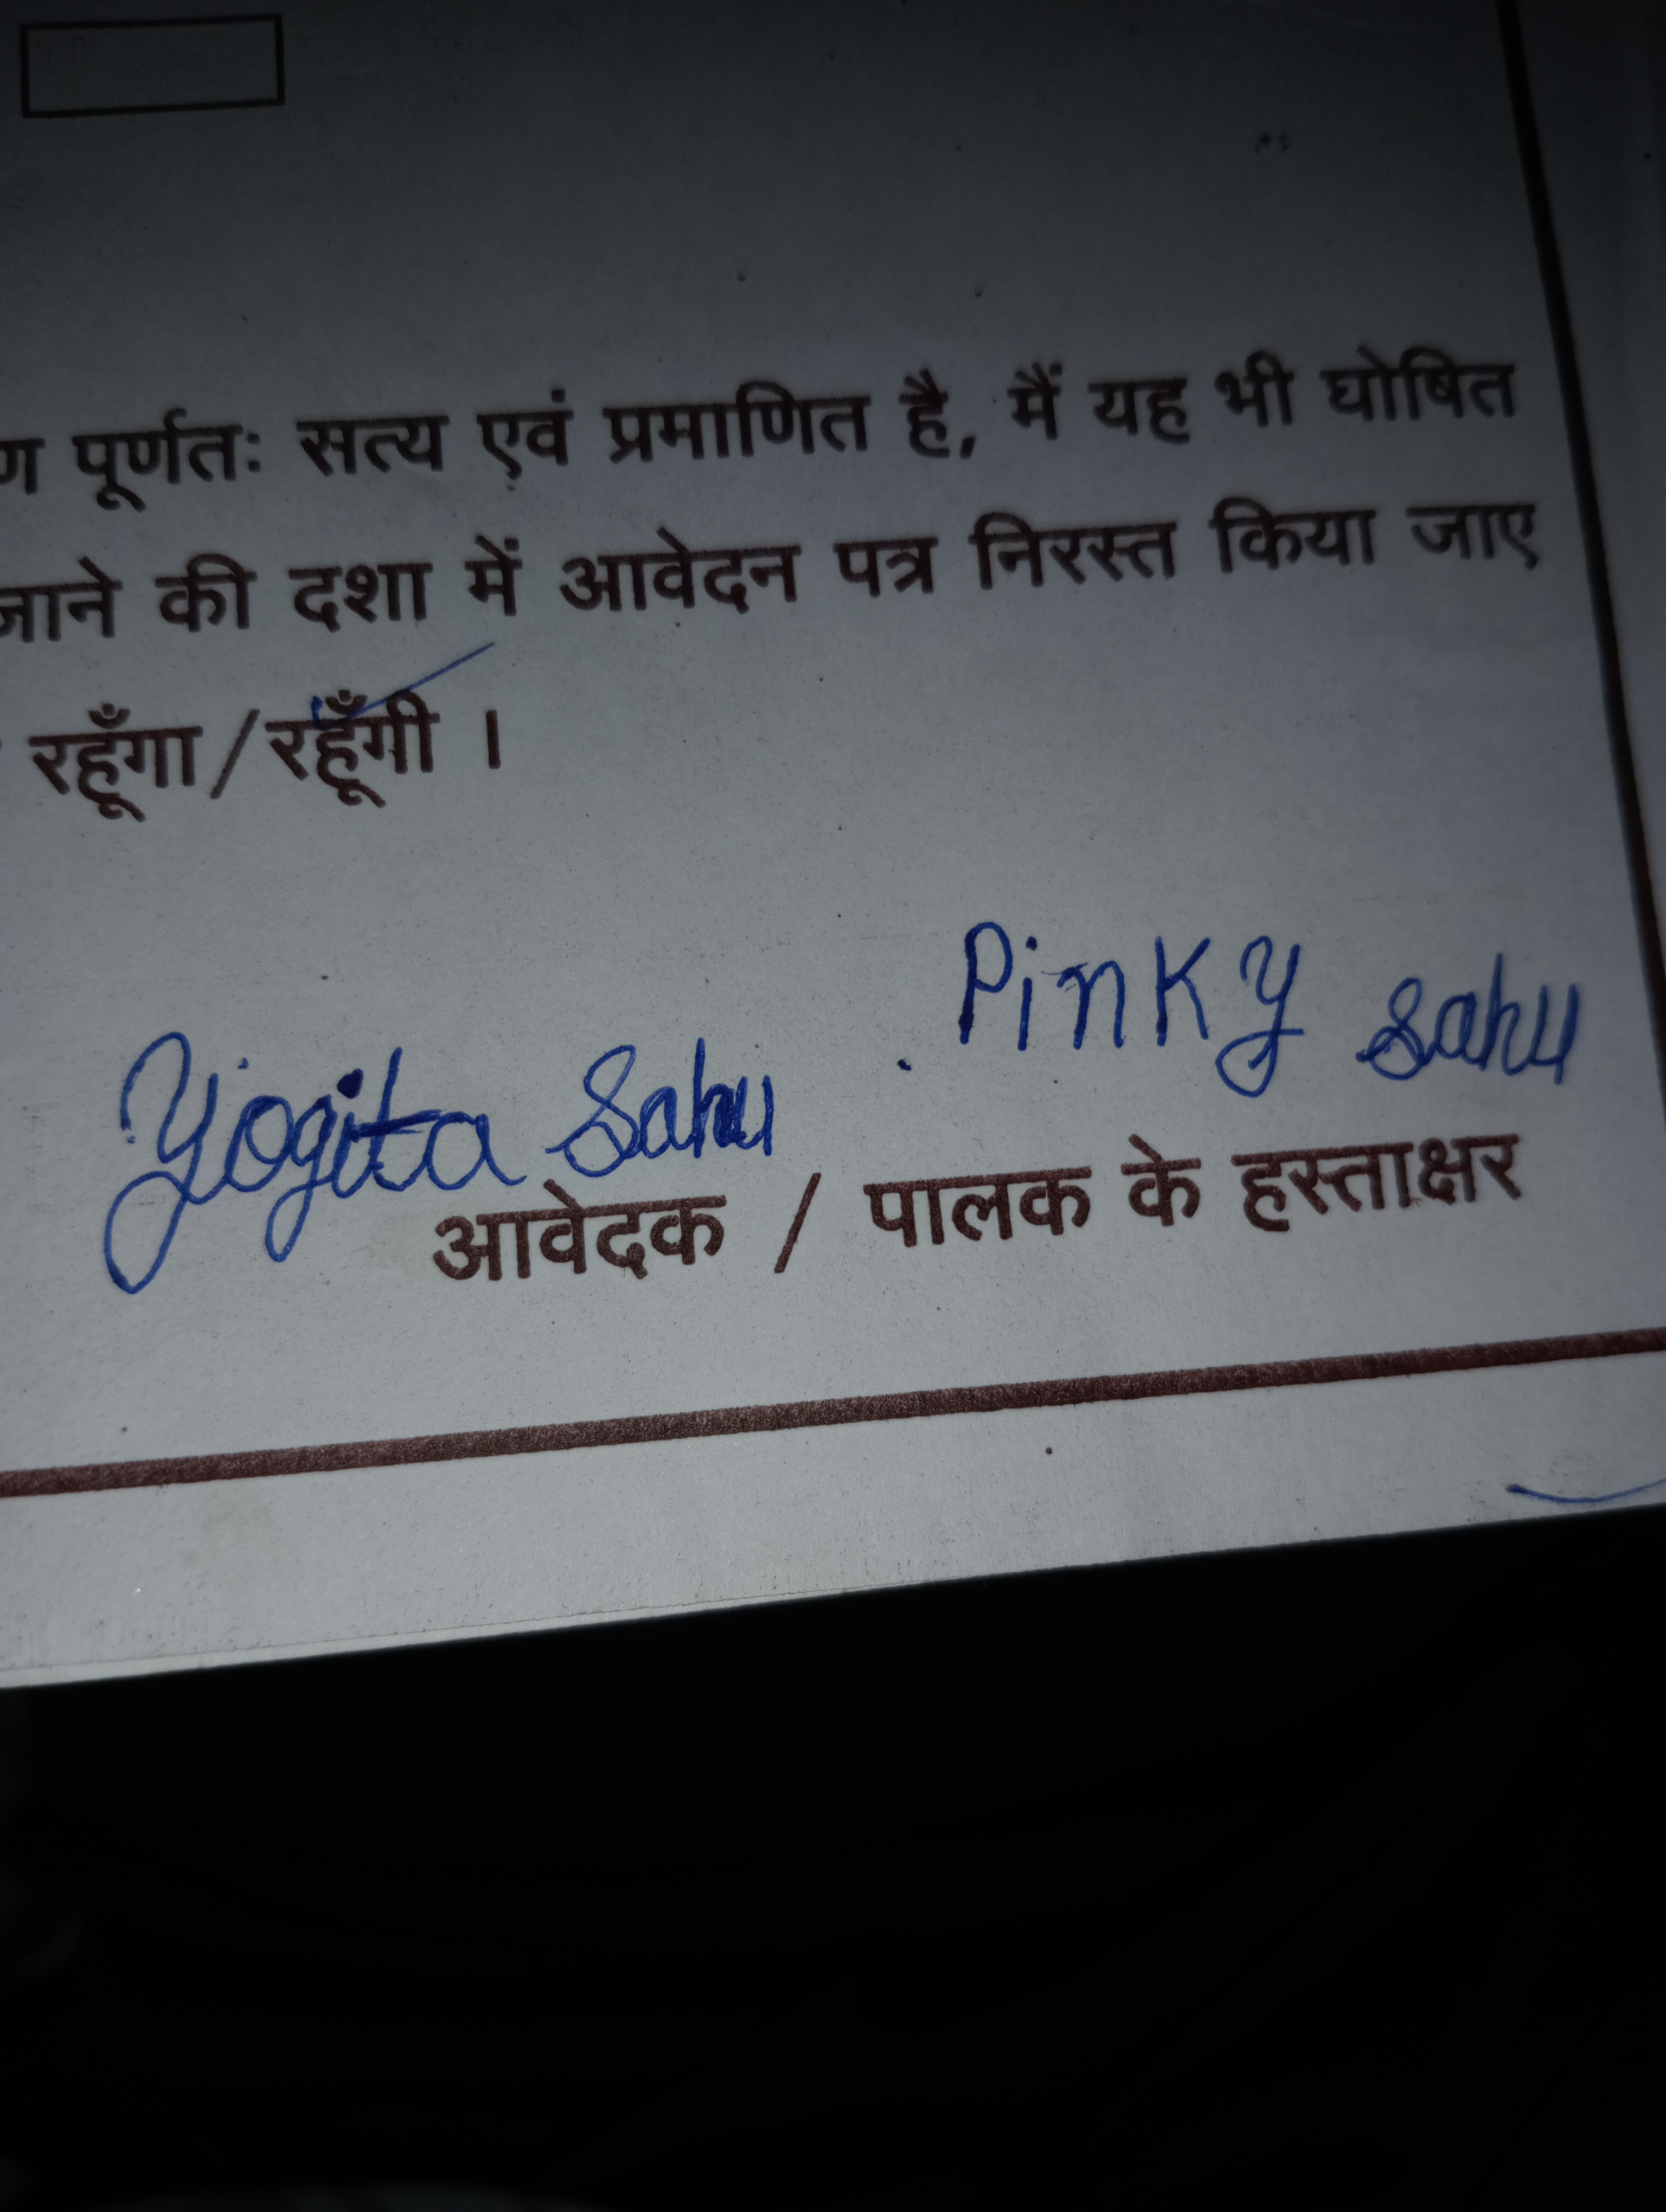 ण पूर्णतः सत्य एवं प्रमाणित है, मैं यह भी घोषित
जाने की दशा में आवेदन पत्र निरस्त किया जाए
रहूँगा/रहूँगी ।
Pinky Sahu
Yogita Sahu
आवेदक / पालक के हस्ताक्षर